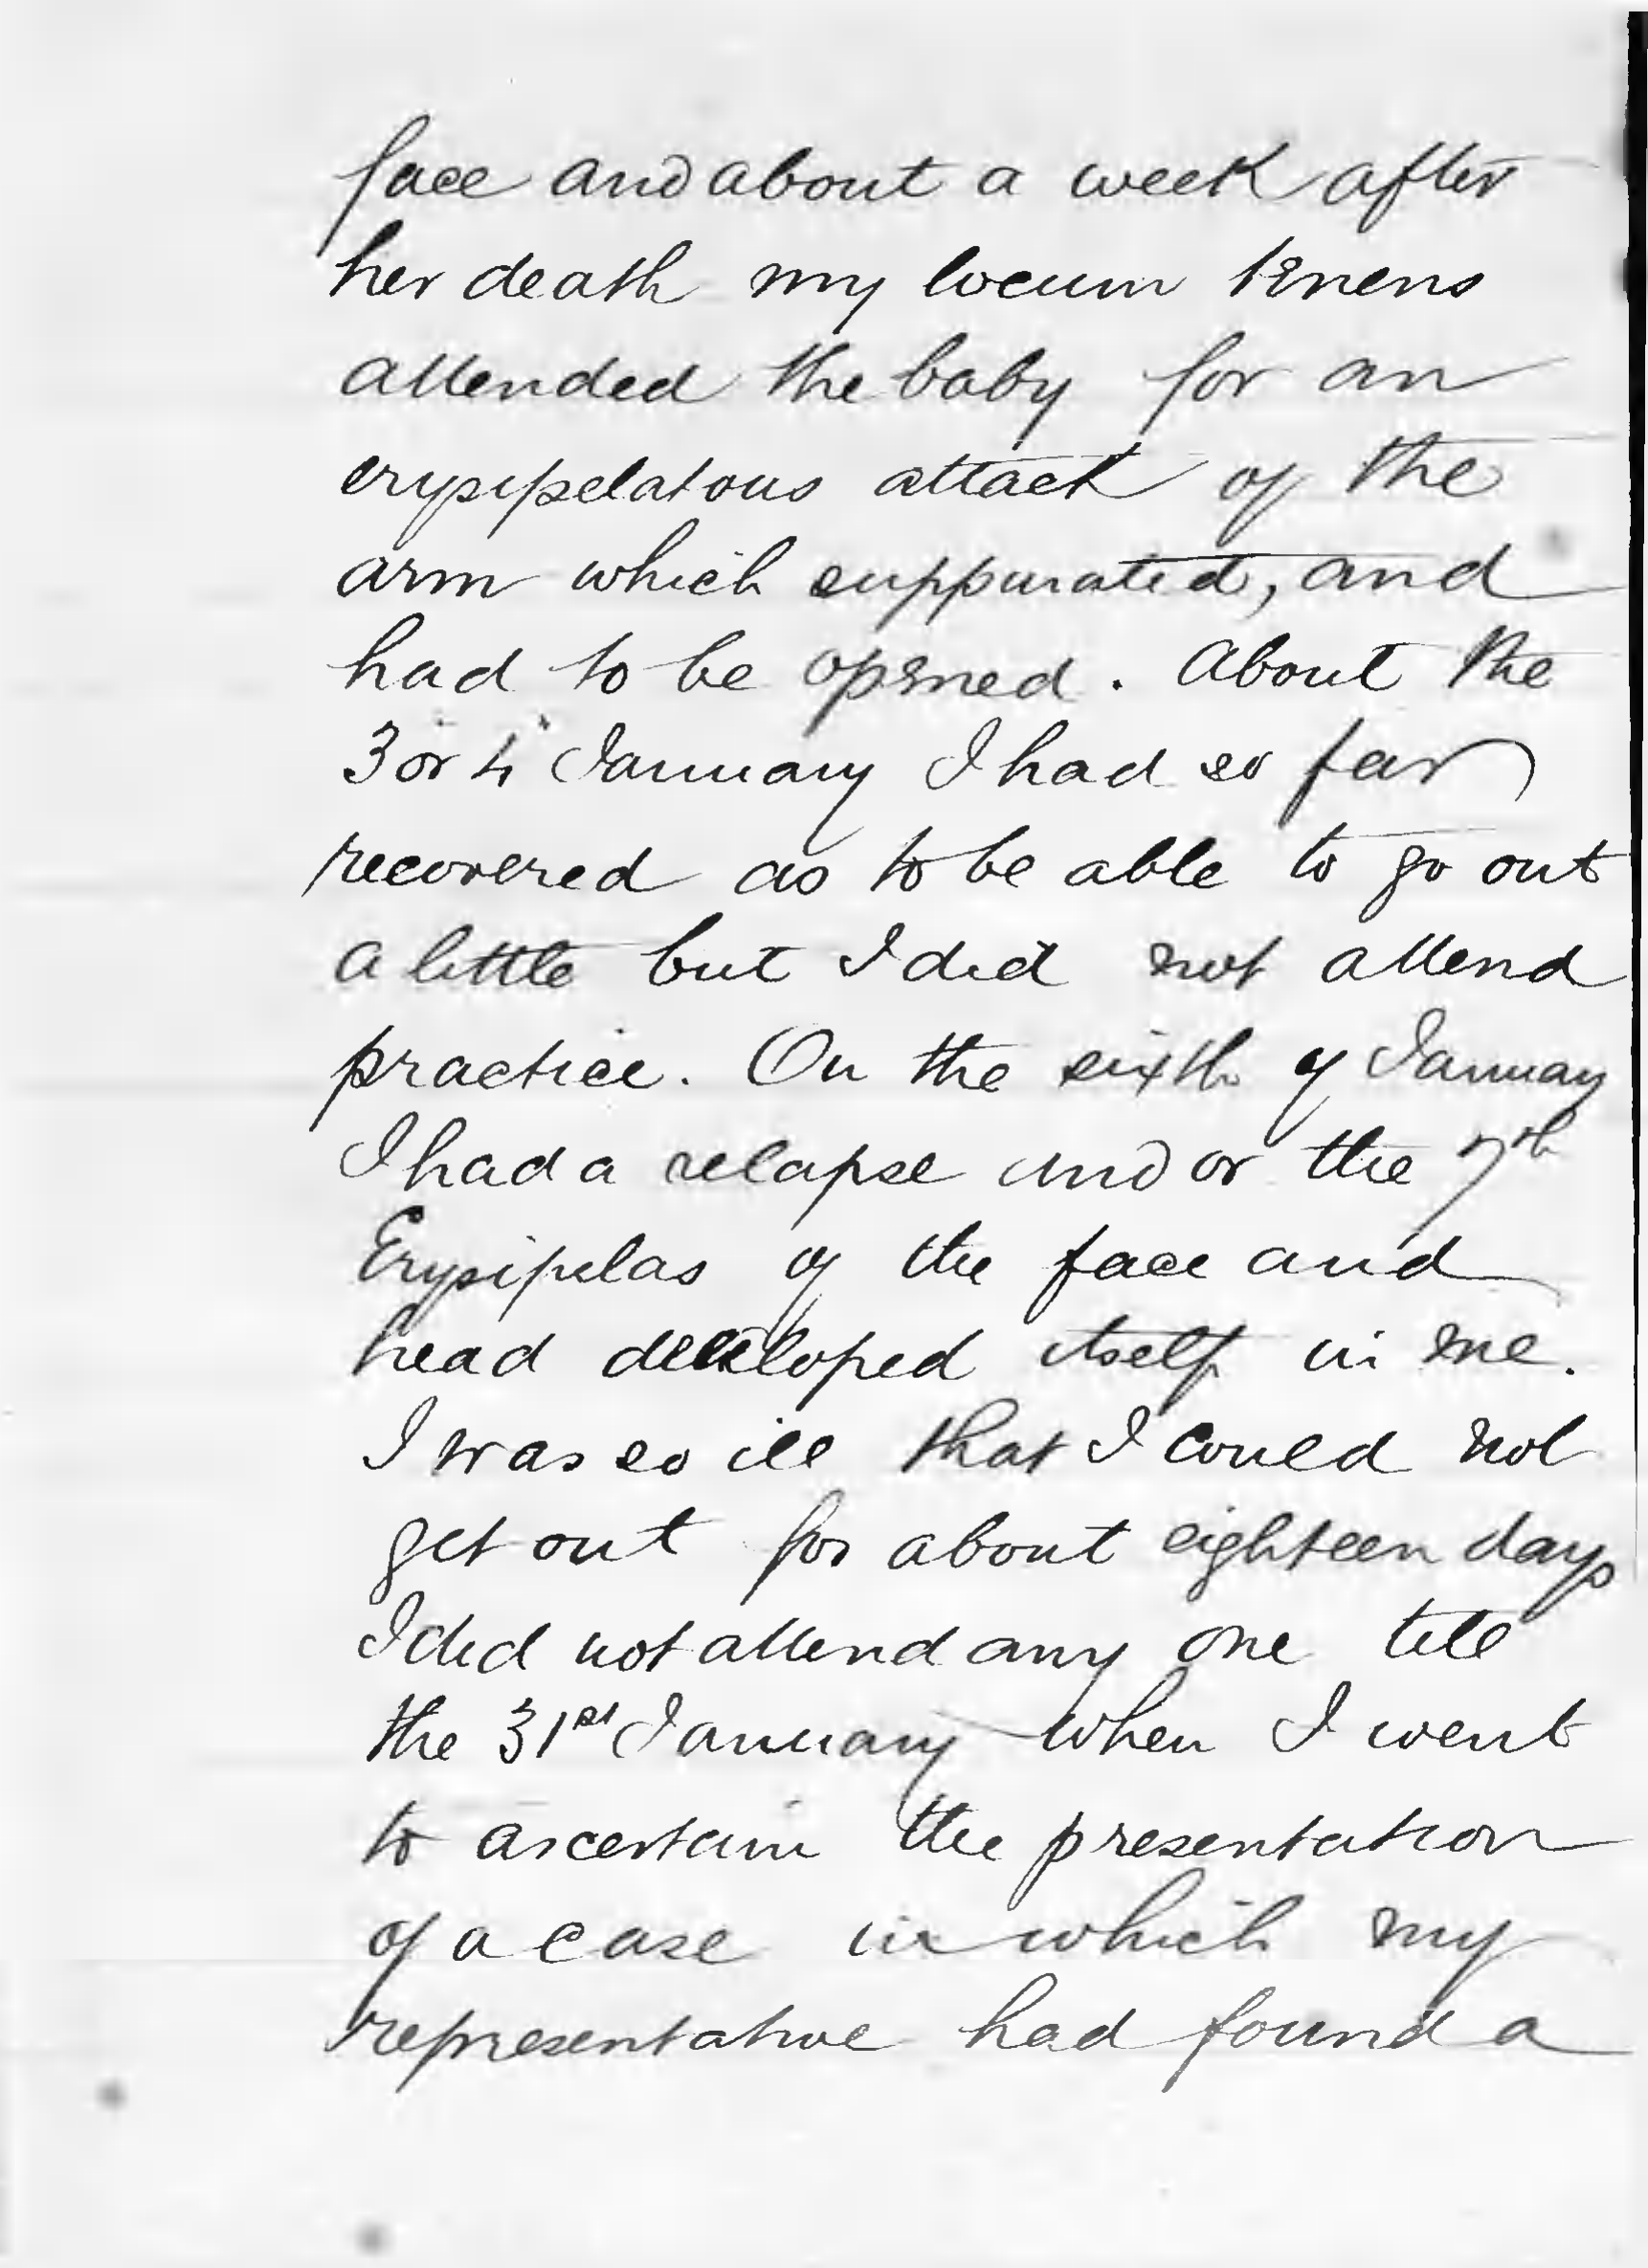 face and about a week after
her death my locum tenens
attended the baby for an
erysipelatous attack of the
arm which suppurated, and
had to be opened. About the
3 or 4 January I had so far
recovered as to be able to go out
a little but I did not attend
practice. On the sixth of January
I had a relapse and or the 7th
Erysipelas of the face and
head developed itself in me.
I was so ill that I could not
get out for about eighteen days
I did not attend any one till
the 31st January when I went
to ascertain the presentation
of a case in which my
representative had found a